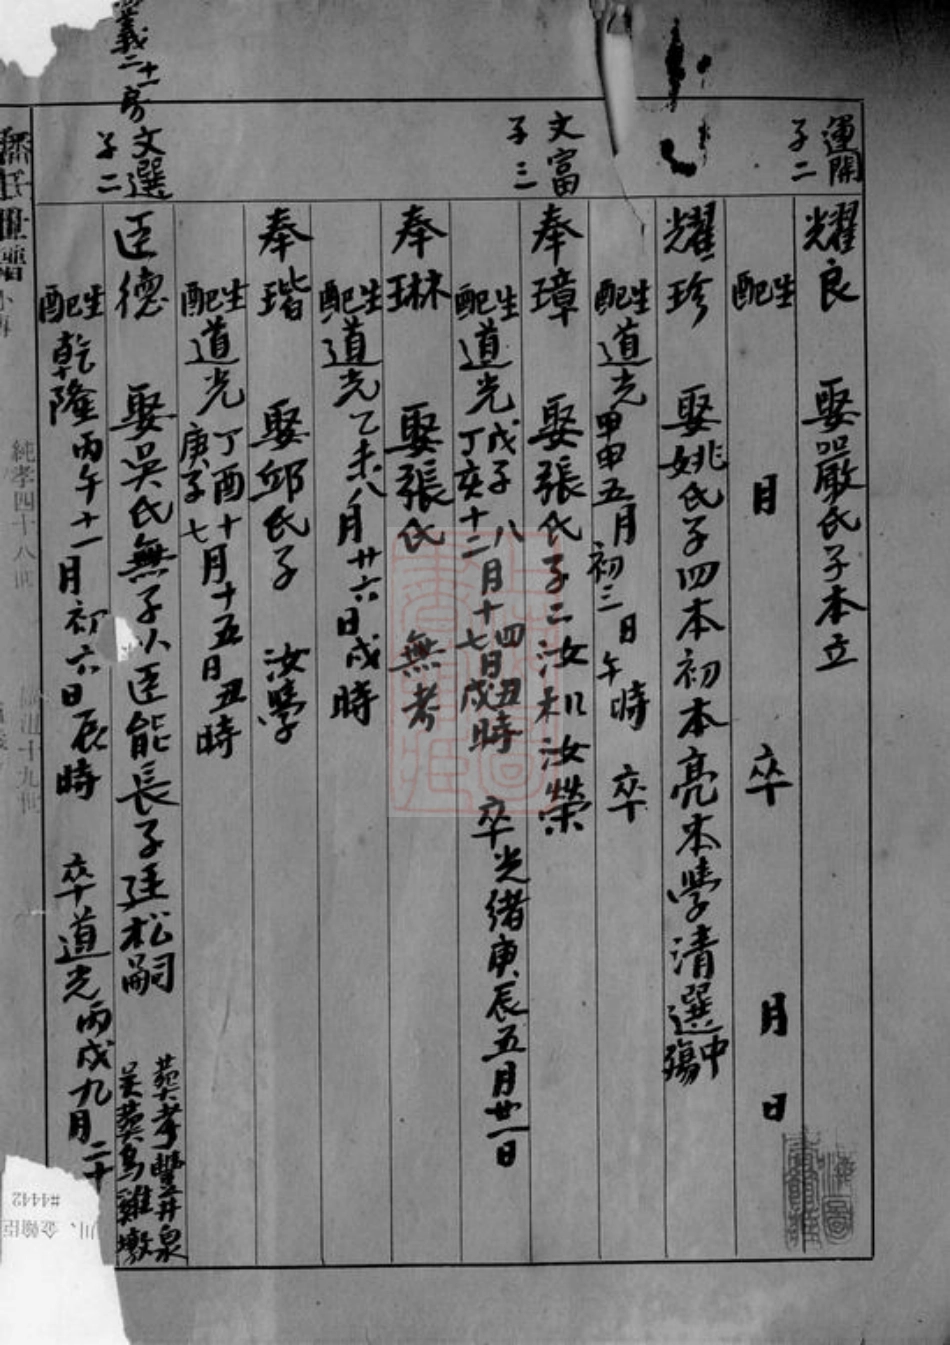 運開
子二
耀良 娶嚴氏子本立
生
配 月 卒 月 日
耀珍 娶姚氏子四本初本亮本學清選中殤
生
配道光甲申五月初三日午時 卒
文富
子三
奉璋 娶張氏子二汝松汝榮
生道光戊子八月十四日丑時
配丁亥十二月十七日戌時 卒光緒庚辰五月廿一日
奉琳 娶張氏 無考
生
配道光乙未八月廿六日戌時
奉瑎 娶邱氏子 汝學
生道光丁酉十月十五日丑時
配庚子七
義二十一房
文選
子二
臣德 娶吳氏無子以臣能長子廷松嗣 葬孝豐井泉
吳葬烏雞墩
生
配乾隆丙午十一月初六日辰時 卒道光丙戌九月二十
世譜
純孝四十八世
十九世
#4442